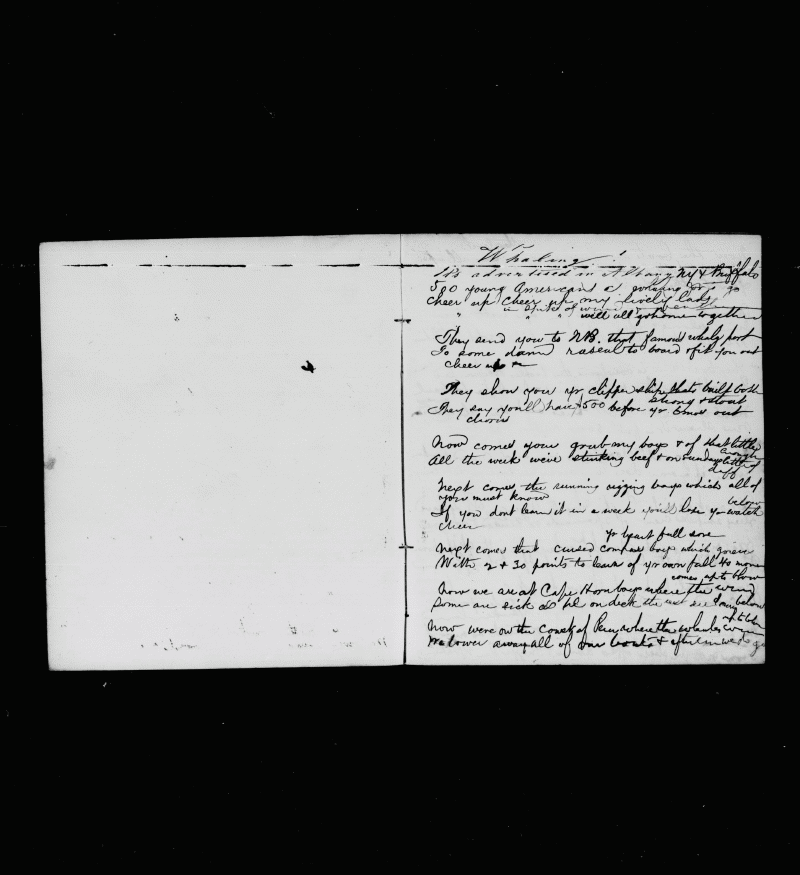 Whaling!
It's advertised in Albany NY & Buffalo
500 young Americans a whaling for to go
Cheer up Cheer up my lively lads
" in spite of
" " " will all go home together
They send you to N.B. that famous whalg port
To some damd rascal to board & fit you out
Cheer up
They show you yr clipper ship thats built both
strong & stout
They say you'll have $500 before yr 6 mos out
chorus
Now comes your grub my boys & of that little
enough
All the week we've stinking beef & on sundays little of
duff
Next comes the running rigging boys which all of
you must know
below
If you dont learn it in a week you'll lose yr watch
cheer
yr heart full sore
Next comes that cursed compass boys which grieve
With 2 & 30 points to learn of yr own full 40 more
comes up to blow
Now we are at Cape Horn boys where the wind
Some are sick on deck the below
Now were on the coast of Peru where the whales
We lower away all of our boats & after